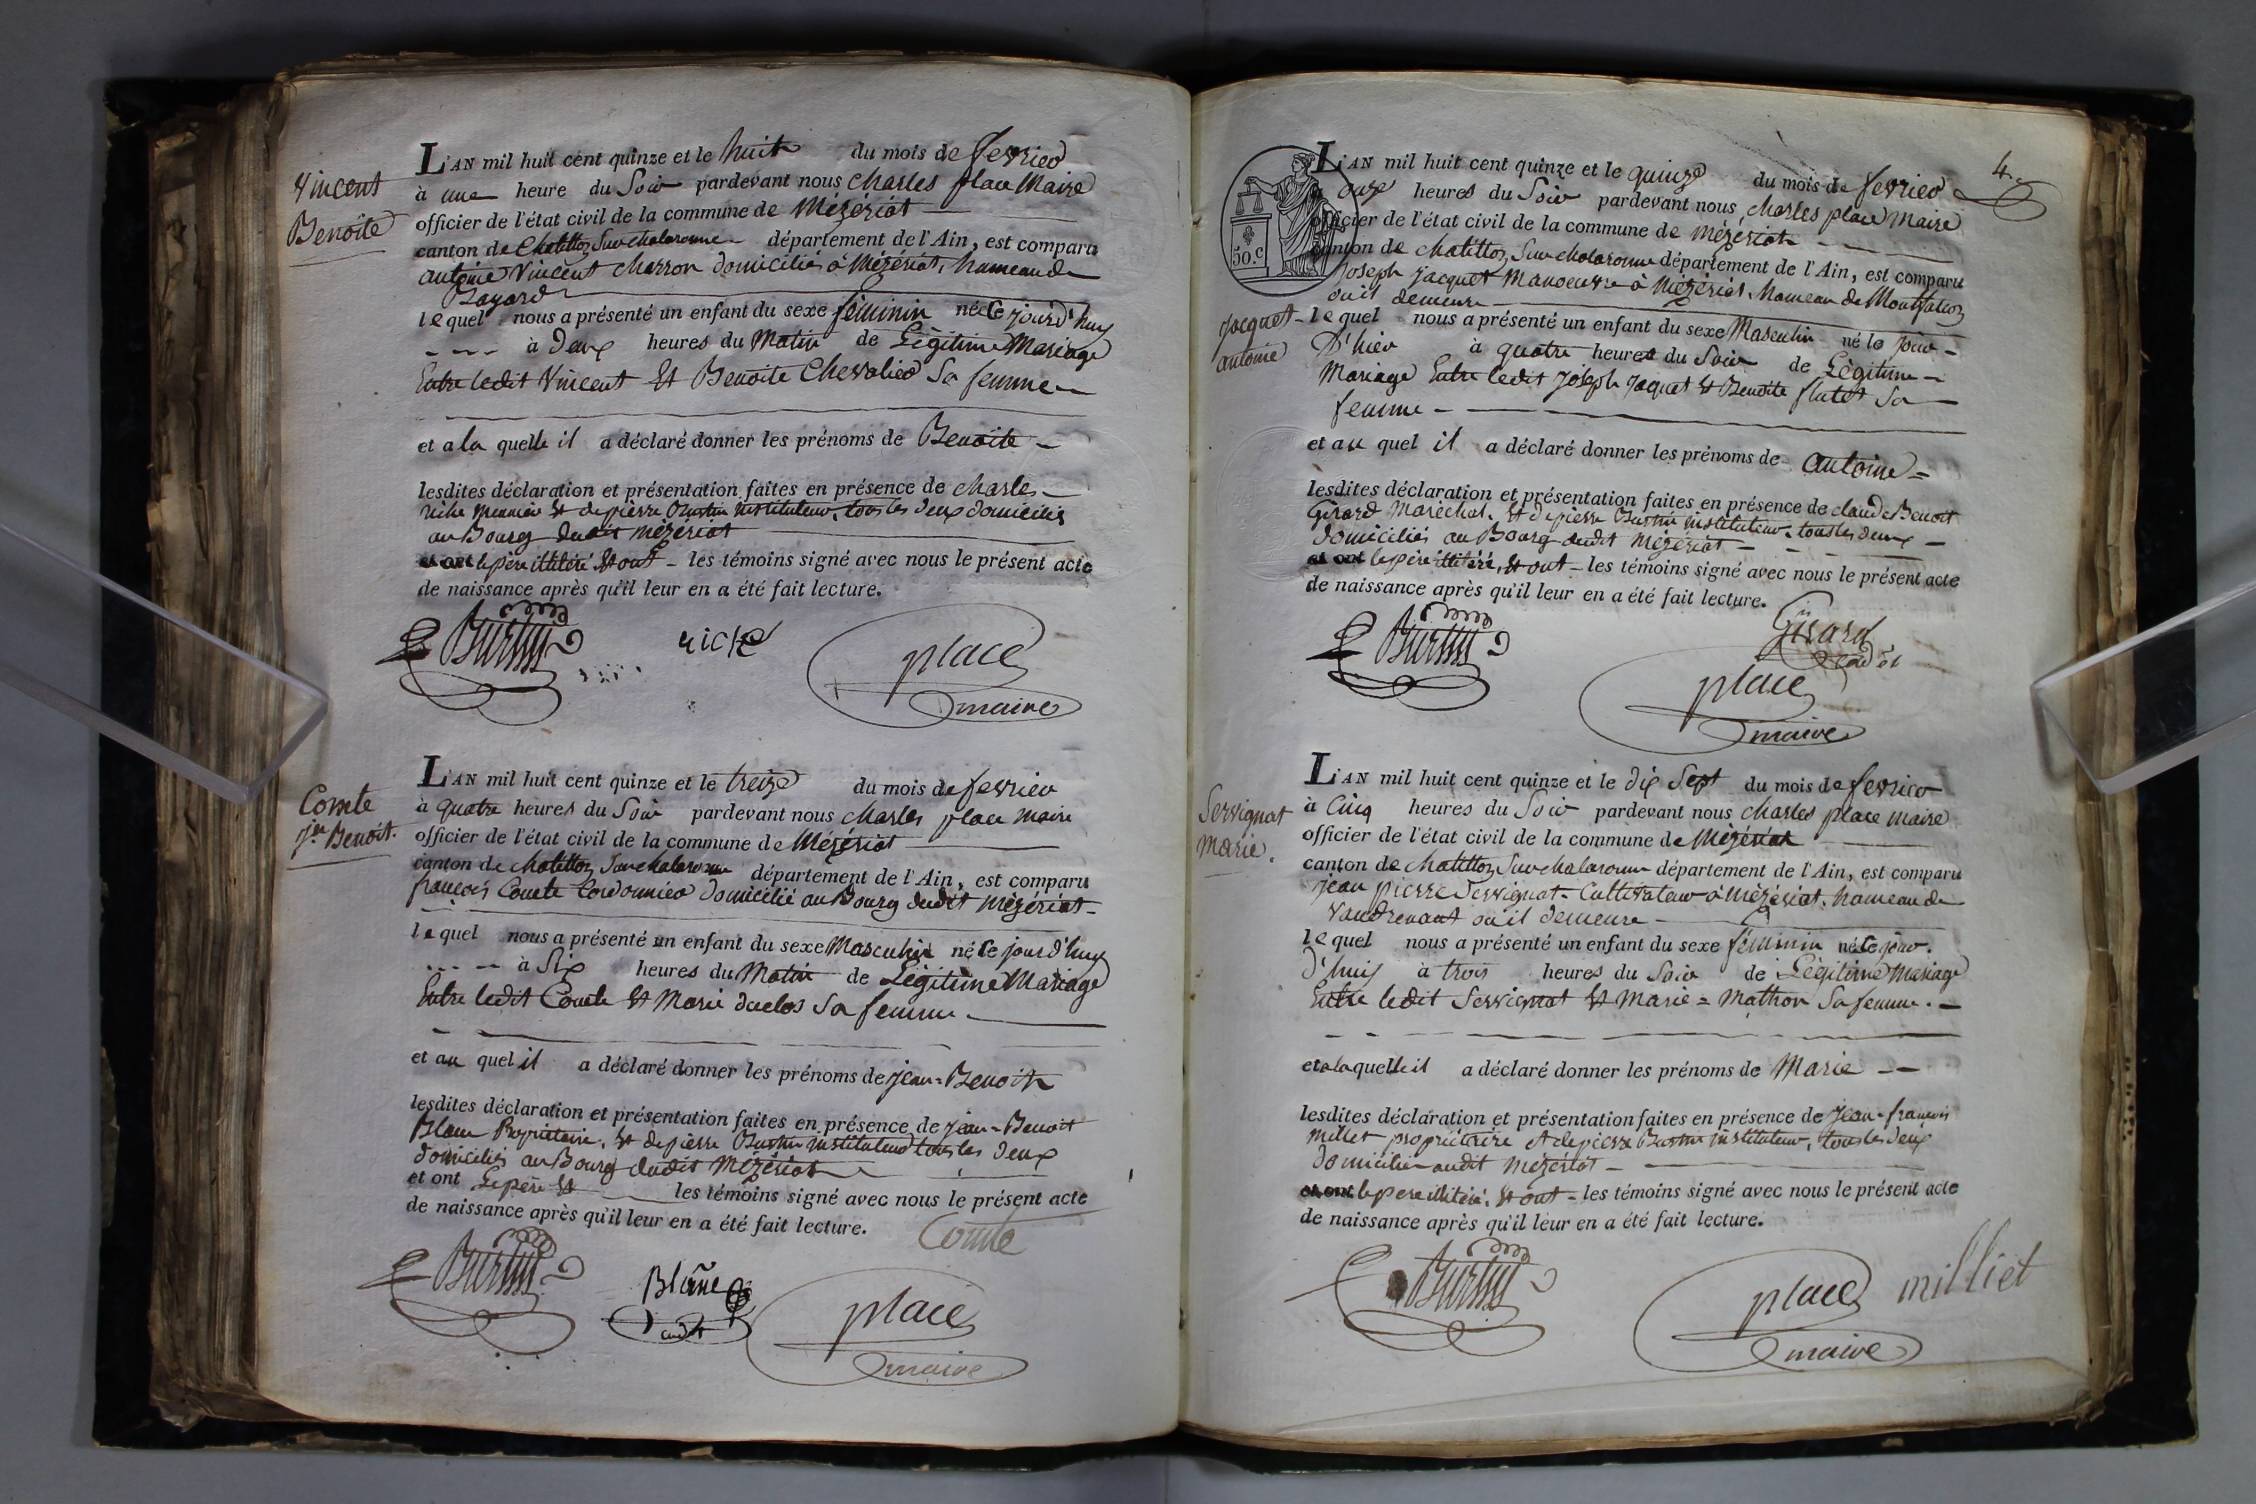 Vincent
Benoite
L'AN mil huit cent quinze et le huit du mois de fevrier
à une heure du Soir pardevant nous charles place Maire
officier de l'état civil de la commune de Mézériat
canton de Chatillon Sur chalaronne département de l'Ain, est comparu
antoine Vincent charron domicilié à Mézériat, hameau de
Bayard
lequel nous a présenté un enfant du sexe féminin né Ce jourd'huy
à Deux heures du Matin de Légitime Mariage
Entre ledit Vincent Et Benoite Chevalier Sa femme
et a la quelle il a déclaré donner les prénoms de Benoite
lesdites déclaration et présentation faites en présence de charles
riche meunier Et de pierre Burtin instituteur, tous les deux domiciliés
au Bourg dudit Mézériat
et ont le père illitéré Et ont les témoins signé avec nous le présent acte
de naissance après qu'il leur en a été fait lecture.
Burtin riche place
maire
Comte
jn Benoit.
L'AN mil huit cent quinze et le treize du mois de fevrier
à quatre heures du Soir pardevant nous charles place maire
officier de l'état civil de la commune de Mézériat
canton de chatillon Sur chalaronne département de l'Ain, est comparu
françois Comte Cordonnier domicilié au Bourg dudit mézériat
lequel nous a présenté un enfant du sexe Masculin né Ce jourd'huy
à Six heures du Matin de Légitime Mariage
Entre ledit Comte Et Marie duclos Sa femme
et au quel il a déclaré donner les prénoms de jean-Benoit
lesdites déclaration et présentation faites en présence de jean-Benoit
Blanc Propriétaire, Et de pierre Burtin instituteur tous les deux
domiciliés au Bourg dudit Mézériat
et ont Le père Et les témoins signé avec nous le présent acte
de naissance après qu'il leur en a été fait lecture.
Comte
Burtin Blanc place
maire
4.
50.c
L'AN mil huit cent quinze et le quinze du mois de fevrier
à onze heures du Soir pardevant nous charles place Maire
officier de l'état civil de la commune de mézériat
canton de chatillon Sur chalaronne département de l'Ain, est comparu
Joseph jacquet Manoeuvre à Mézériat. hameau de Montfalcon
où il demeure
jacquet
antoine
lequel nous a présenté un enfant du sexe Masculin né le jour
D'hier à quatre heures du Soir de Légitime
Mariage Entre ledit joseph jaquet Et Benoite flutet Sa
femme
et au quel il a déclaré donner les prénoms de antoine
lesdites déclaration et présentation faites en présence de claude Benoit
Girard Maréchal, Et de pierre Burtin instituteur, tous les deux
domiciliés au Bourg dudit Mézériat
et ont le père illitéré, Et ont les témoins signé avec nous le présent acte
de naissance après qu'il leur en a été fait lecture.
Burtin Girard
place
maire
Servignat
marie.
L'AN mil huit cent quinze et le dix Sept du mois de fevrier
à Cinq heures du Soir pardevant nous charles place maire
officier de l'état civil de la commune de Mézériat
canton de chatillon Sur chalaronne département de l'Ain, est comparu
jean pierre Servignat Cultivateur à Mézériat. hameau de
vaudrenant où il demeure
lequel nous a présenté un enfant du sexe féminin né Ce jour.
d'huy à trois heures du Soir de Légitime Mariage
Entre ledit Servignat Et Marie = Mathon Sa femme.
et a la quelle il a déclaré donner les prénoms de Marie
lesdites déclaration et présentation faites en présence de jean-françois
millet propriétaire et de pierre Burtin instituteur, tous les deux
domiciliés audit Mézériat
et ont le père illitéré, Et ont les témoins signé avec nous le présent acte
de naissance après qu'il leur en a été fait lecture.
Burtin place milliet
maire